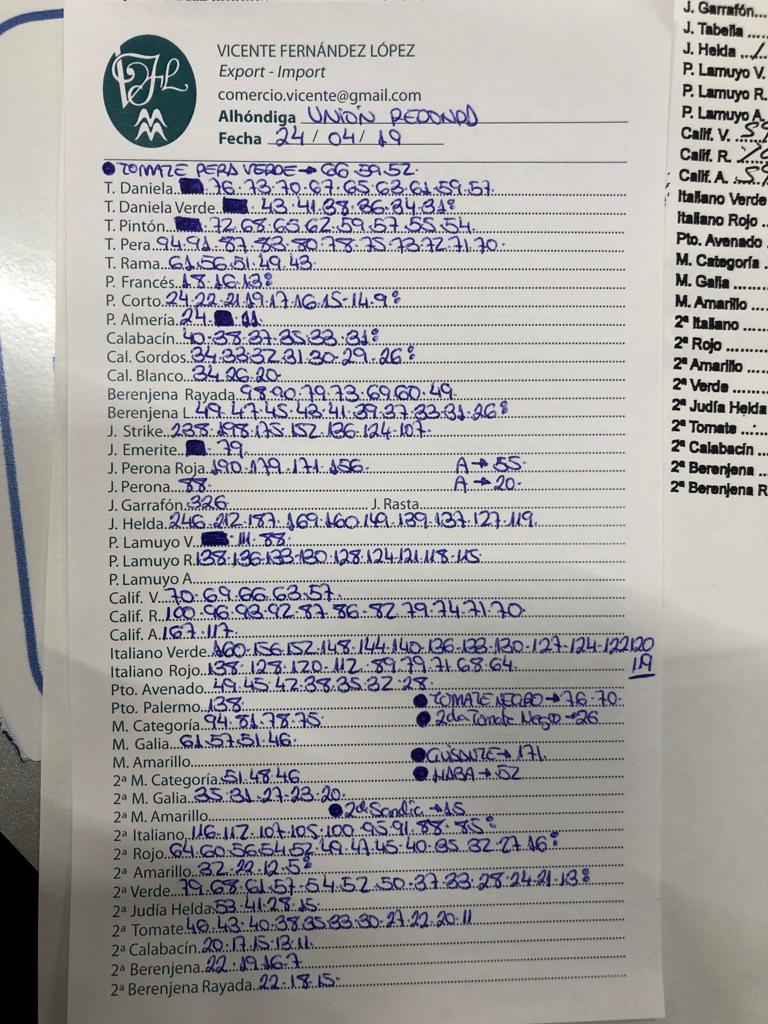 VICENTE FERNÁNDEZ LÓPEZ
Export - Import
comercio.vicente@gmail.com
Alhóndiga UNIÓN REDOND
Fecha 24 / 04 / 19
TOMATE PERA VERDE → 66.59.52.
T. Daniela 76.73.70.67.65.63.61.59.57.
T. Daniela Verde 43.41.38.36.34.31º
T. Pintón 72.68.65.62.59.57.55.54.
T. Pera 94.91.87.83.80.78.75.73.72.71.70.
T. Rama 61.56.51.49.43.
P. Francés 18.16.13º
P. Corto 24.22.21.19.17.16.15.14.9º
P. Almería 24. 11
Calabacín 40.38.37.35.33.31º
Cal. Gordos 34.33.32.31.30.29.26º
Cal. Blanco 34.26.20.
Berenjena Rayada 98.90.79.73.69.60.49
Berenjena L. 49.47.45.43.41.39.37.33.31.26º
J. Strike 238.198.175.152.136.124.107.
J. Emerite 79.
J. Perona Roja 190.179.171.156. A → 55
J. Perona 88. A → 20.
J. Garrafón 326 J. Rasta
J. Helda 246.212.187.169.160.149.139.137.127.119.
P. Lamuyo V. 111.88
P. Lamuyo R. 138.136.133.130.128.124.121.118.115
P. Lamuyo A.
Calif. V. 70.69.66.63.57.
Calif. R. 100.96.93.92.87.86.82.79.74.71.70.
Calif. A. 167.117.
Italiano Verde 160.156.152.148.144.140.136.133.130.127.124.122 120
Italiano Rojo 138.128.120.112.89.79.71.68.64. 119
Pto. Avenado 49.45.42.38.35.32.28.
Pto. Palermo 138. TOMATE NEGRO → 76.70.
M. Categoría 94.81.78.75. 2da Tomate Negro → 26
M. Galia 61.57.51.46.
M. Amarillo GUISANTE → 171.
2ª M. Categoría 51.48.46 HABA → 52
2ª M. Galia 35.31.27.23.20.
2ª M. Amarillo 2da Sandía → 15
2ª Italiano 116.112.107.105.100.95.91.88.85º
2ª Rojo 64.60.56.54.52.49.47.45.40.35.32.27.16º
2ª Amarillo 32.22.12.5º
2ª Verde 79.68.61.57.54.52.50.37.33.28.24.21.13º
2ª Judía Helda 53.41.28.15.
2ª Tomate 46.43.40.38.35.33.30.27.22.20.11
2ª Calabacín 20.17.15.13.11.
2ª Berenjena 22.19.16.7
2ª Berenjena Rayada 22.18.15.
J. Garrafón
J. Tabella
J. Helda
P. Lamuyo V.
P. Lamuyo R.
P. Lamuyo A.
Calif. V.
Calif. R.
Calif. A.
Italiano Verde
Italiano Rojo
Pto. Avenado
M. Categoría
M. Galia
M. Amarillo
2ª Italiano
2ª Rojo
2ª Amarillo
2ª Verde
2ª Judía Helda
2ª Tomate
2ª Calabacín
2ª Berenjena
2ª Berenjena R